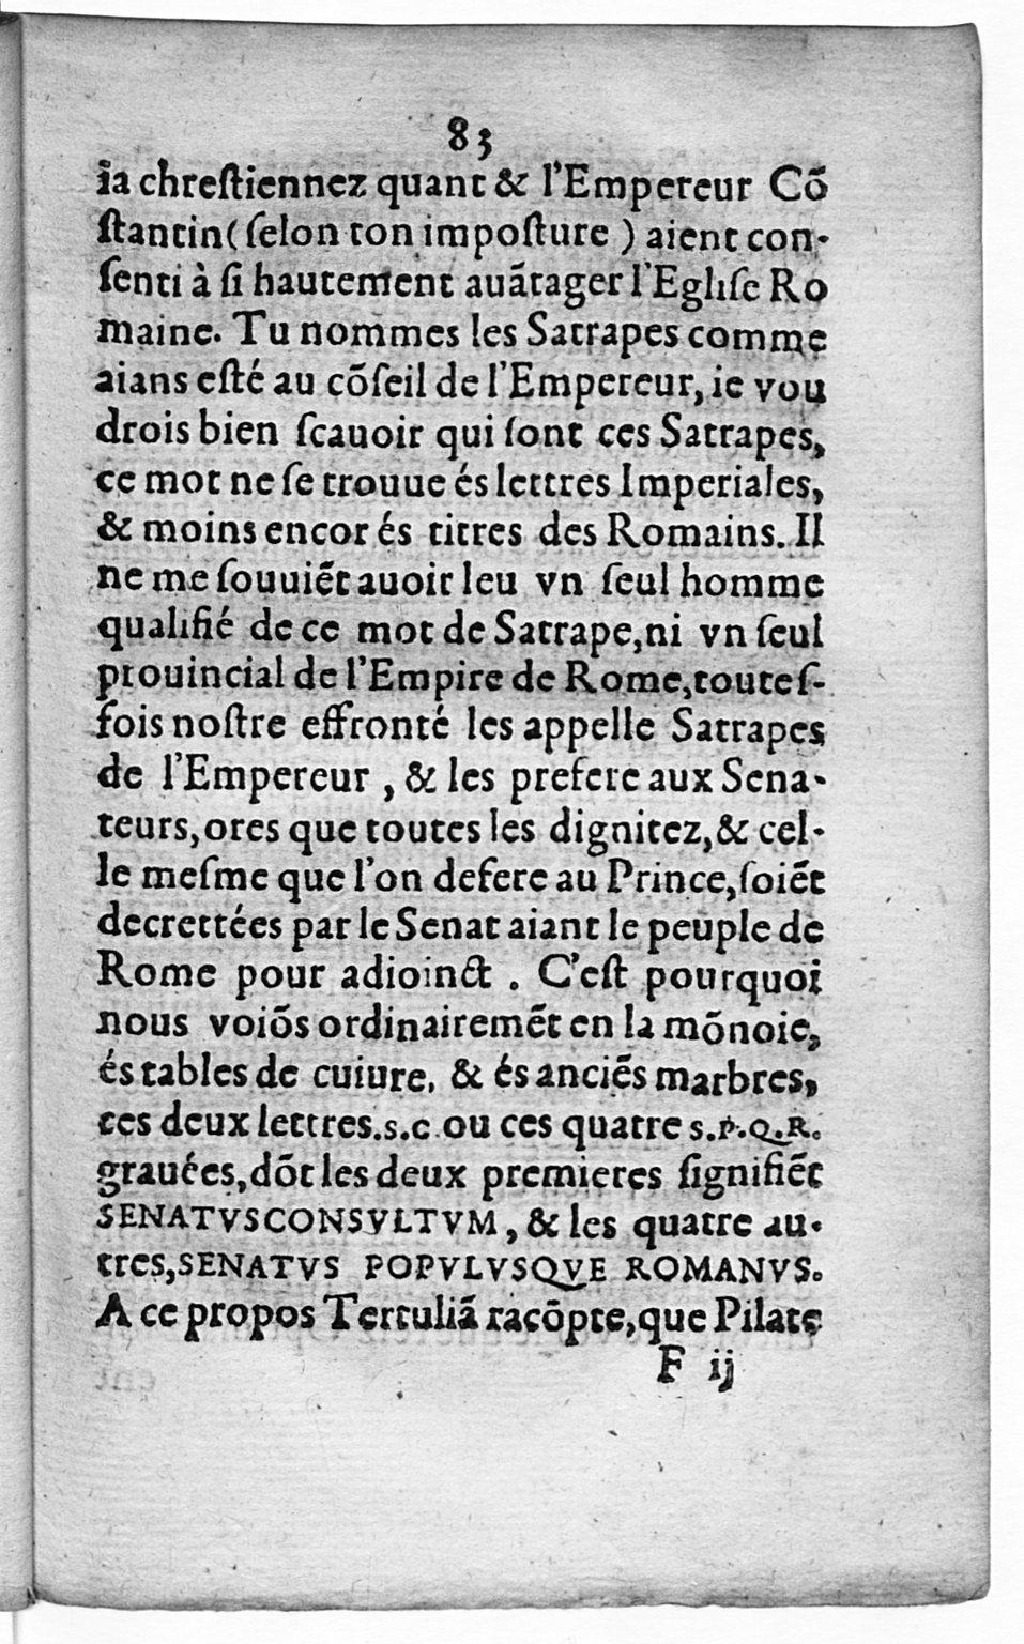 83
ia chreſtiennez quant & l'Empereur Cõ
ſtantin( ſelon ton impoſture ) aient con-
ſenti à ſi hautement auãtager l'Egliſe Ro
maine. Tu nommes les Satrapes comme
aians eſté au cõſeil de l'Empereur, ie vou
drois bien ſcauoir qui ſont ces Satrapes,
ce mot ne ſe trouue és lettres Imperiales,
& moins encor és titres des Romains. Il
ne me ſouuiẽt auoir leu vn ſeul homme
qualifié de ce mot de Satrape, ni vn ſeul
prouincial de l'Empire de Rome, touteſ-
fois noſtre effronté les appelle Satrapes
de l'Empereur , & les prefere aux Sena-
teurs, ores que toutes les dignitez, & cel-
le meſme que l'on defere au Prince, ſoiẽt
decrettées par le Senat aiant le peuple de
Rome pour adioinct . C'eſt pourquoi
nous voiõs ordinairemẽt en la mõnoie,
és tables de cuiure, & és anciẽs marbres,
ces deux lettres.s.c.ou ces quatre s.P.Q.R.
grauées, dõt les deux premieres ſignifiẽt
SENATVSCONSVLTVM, & les quatre au-
tres, SENATVS POPVLVSQVE ROMANVS.
A ce propos Tertuliã racõpte, que Pilate
F ij